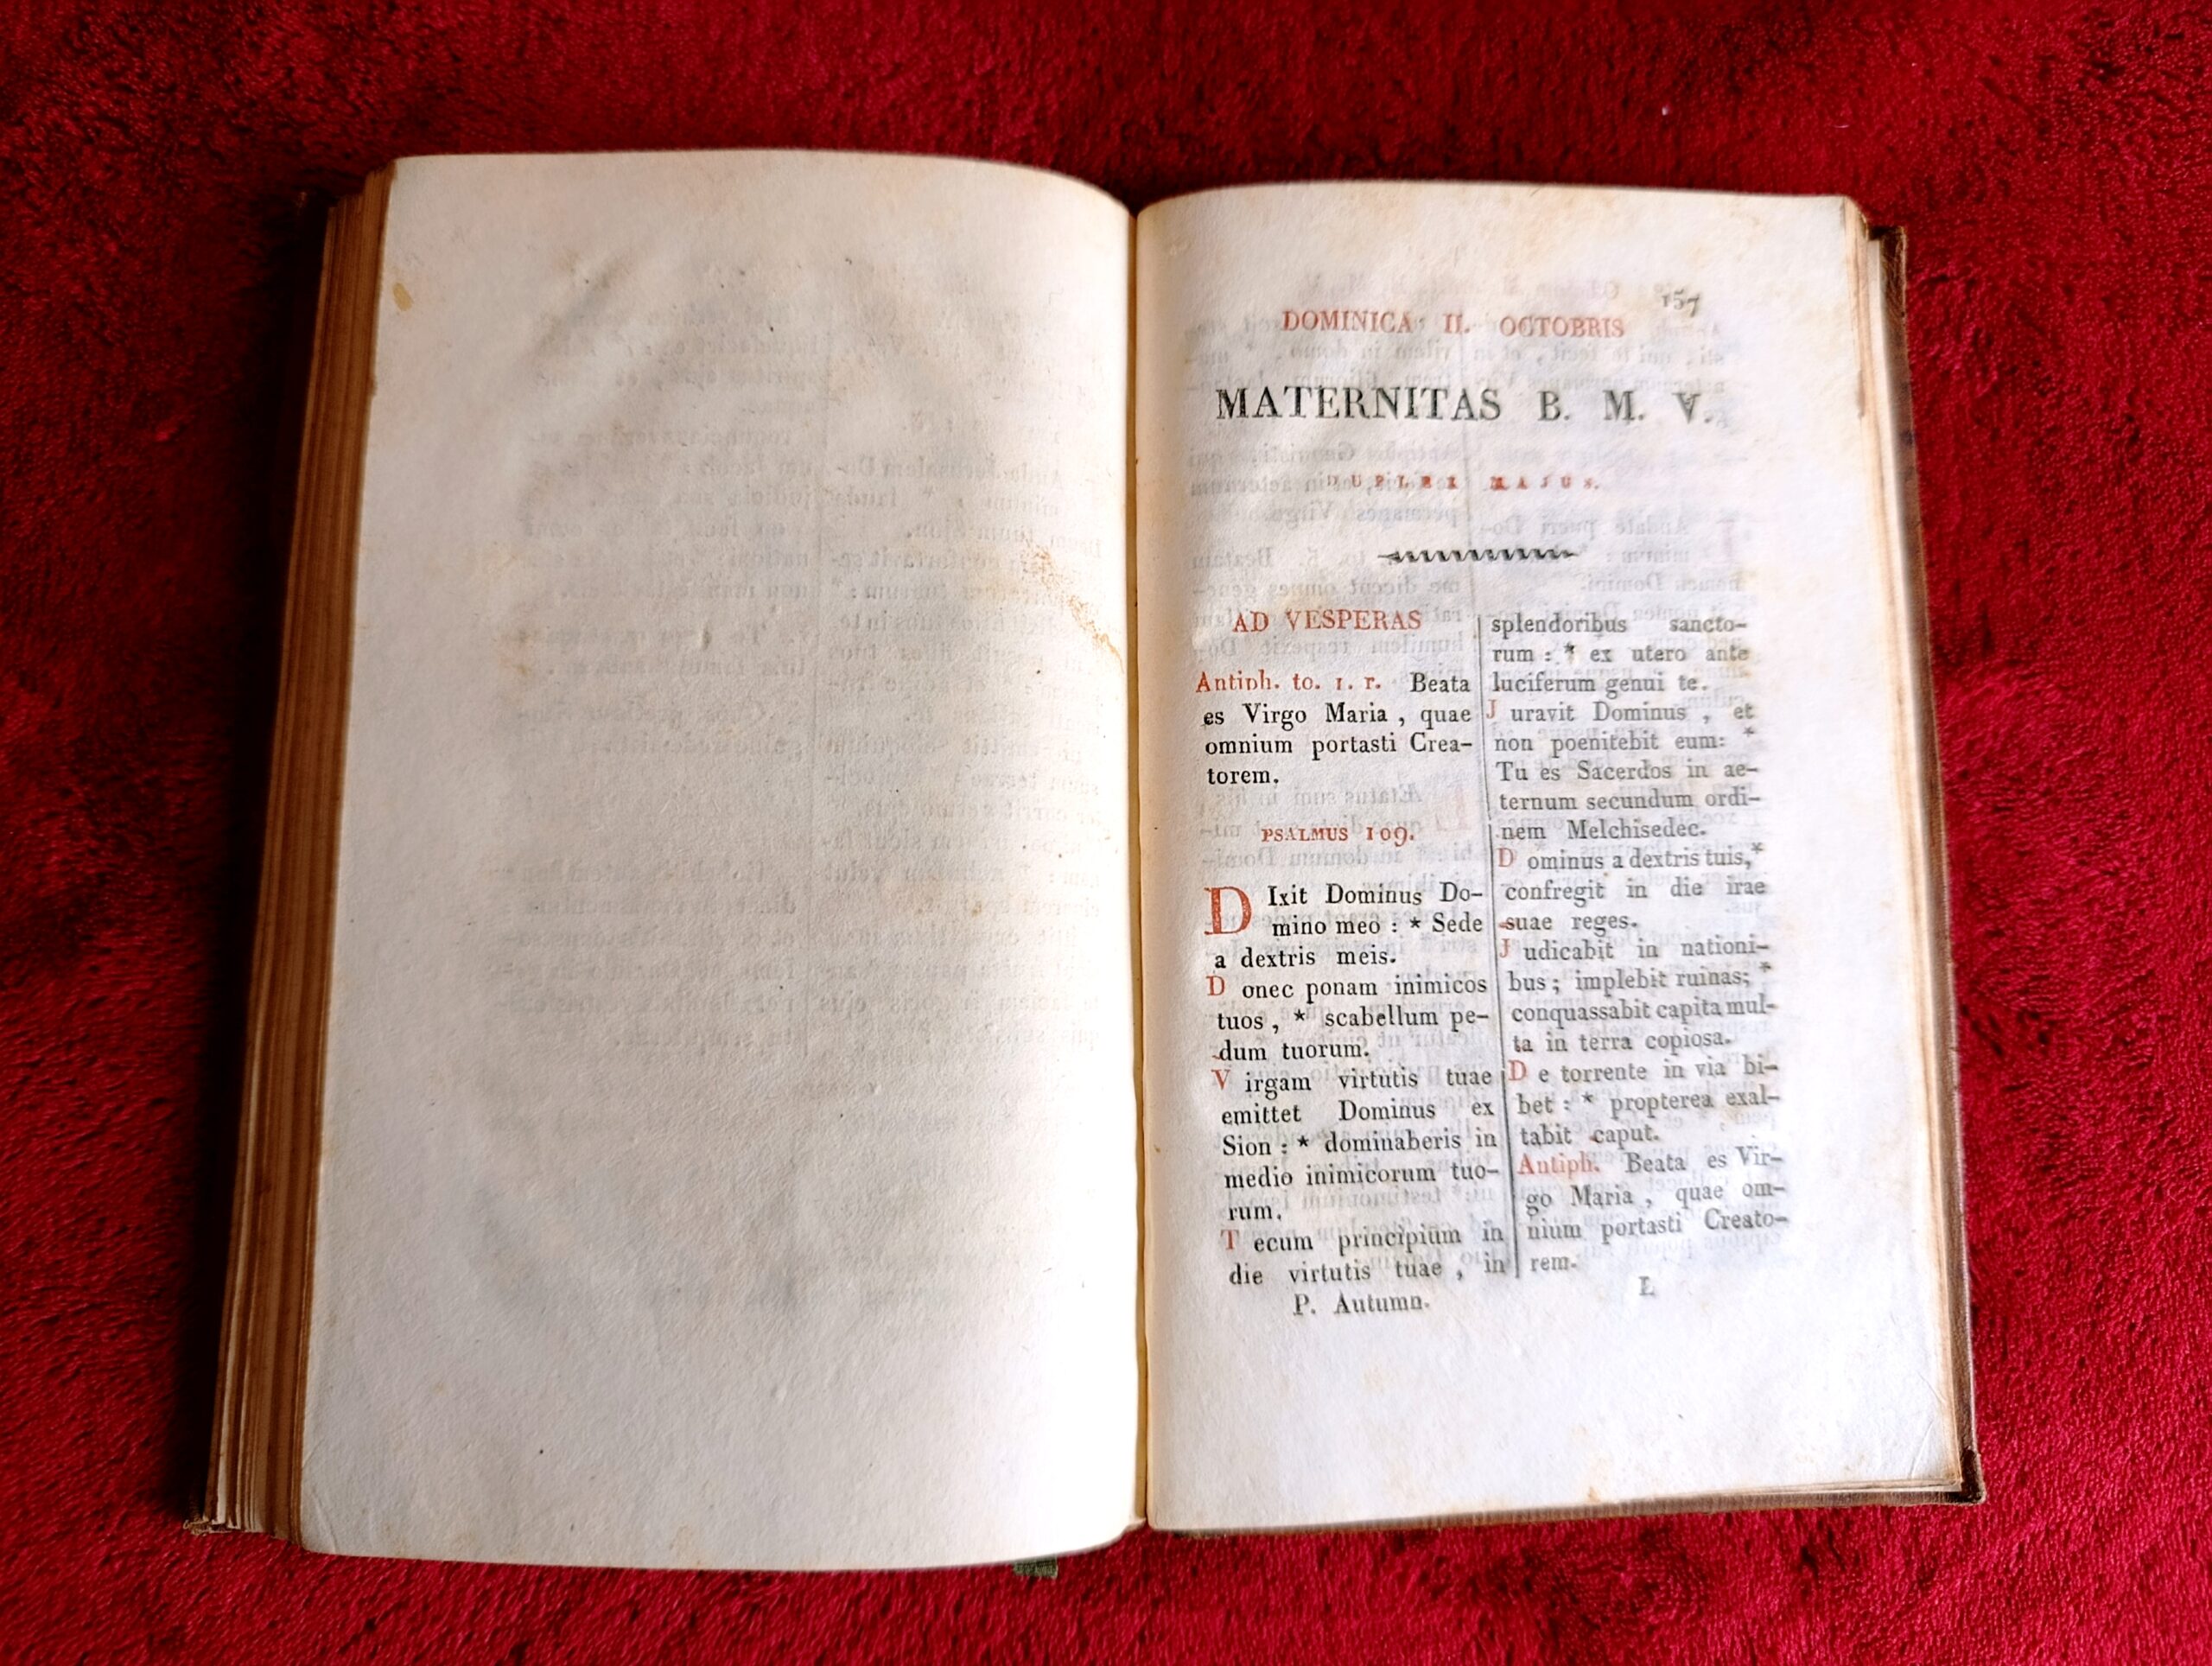 157
DOMINICA II. OCTOBRIS
MATERNITAS B. M. V.
DUPLEX MAJUS.
AD VESPERAS
Antiph. to. 1. r. Beata
es Virgo Maria , quae
omnium portasti Crea-
torem.
PSALMUS 109.
DIxit Dominus Do-
mino meo : * Sede
a dextris meis.
Donec ponam inimicos
tuos , * scabellum pe-
dum tuorum.
Virgam virtutis tuae
emittet Dominus ex
Sion : * dominaberis in
medio inimicorum tuo-
rum.
Tecum principium in
die virtutis tuae , in
P. Autumn.
splendoribus sancto-
rum : * ex utero ante
luciferum genui te.
Juravit Dominus , et
non poenitebit eum: *
Tu es Sacerdos in ae-
ternum secundum ordi-
nem Melchisedec.
Dominus a dextris tuis,*
confregit in die irae
suae reges.
Judicabit in nationi-
bus ; implebit ruinas; *
conquassabit capita mul-
ta in terra copiosa.
De torrente in via bi-
bet : * propterea exal-
tabit caput.
Antiph. Beata es Vir-
go Maria , quae om-
nium portasti Creato-
rem.
L